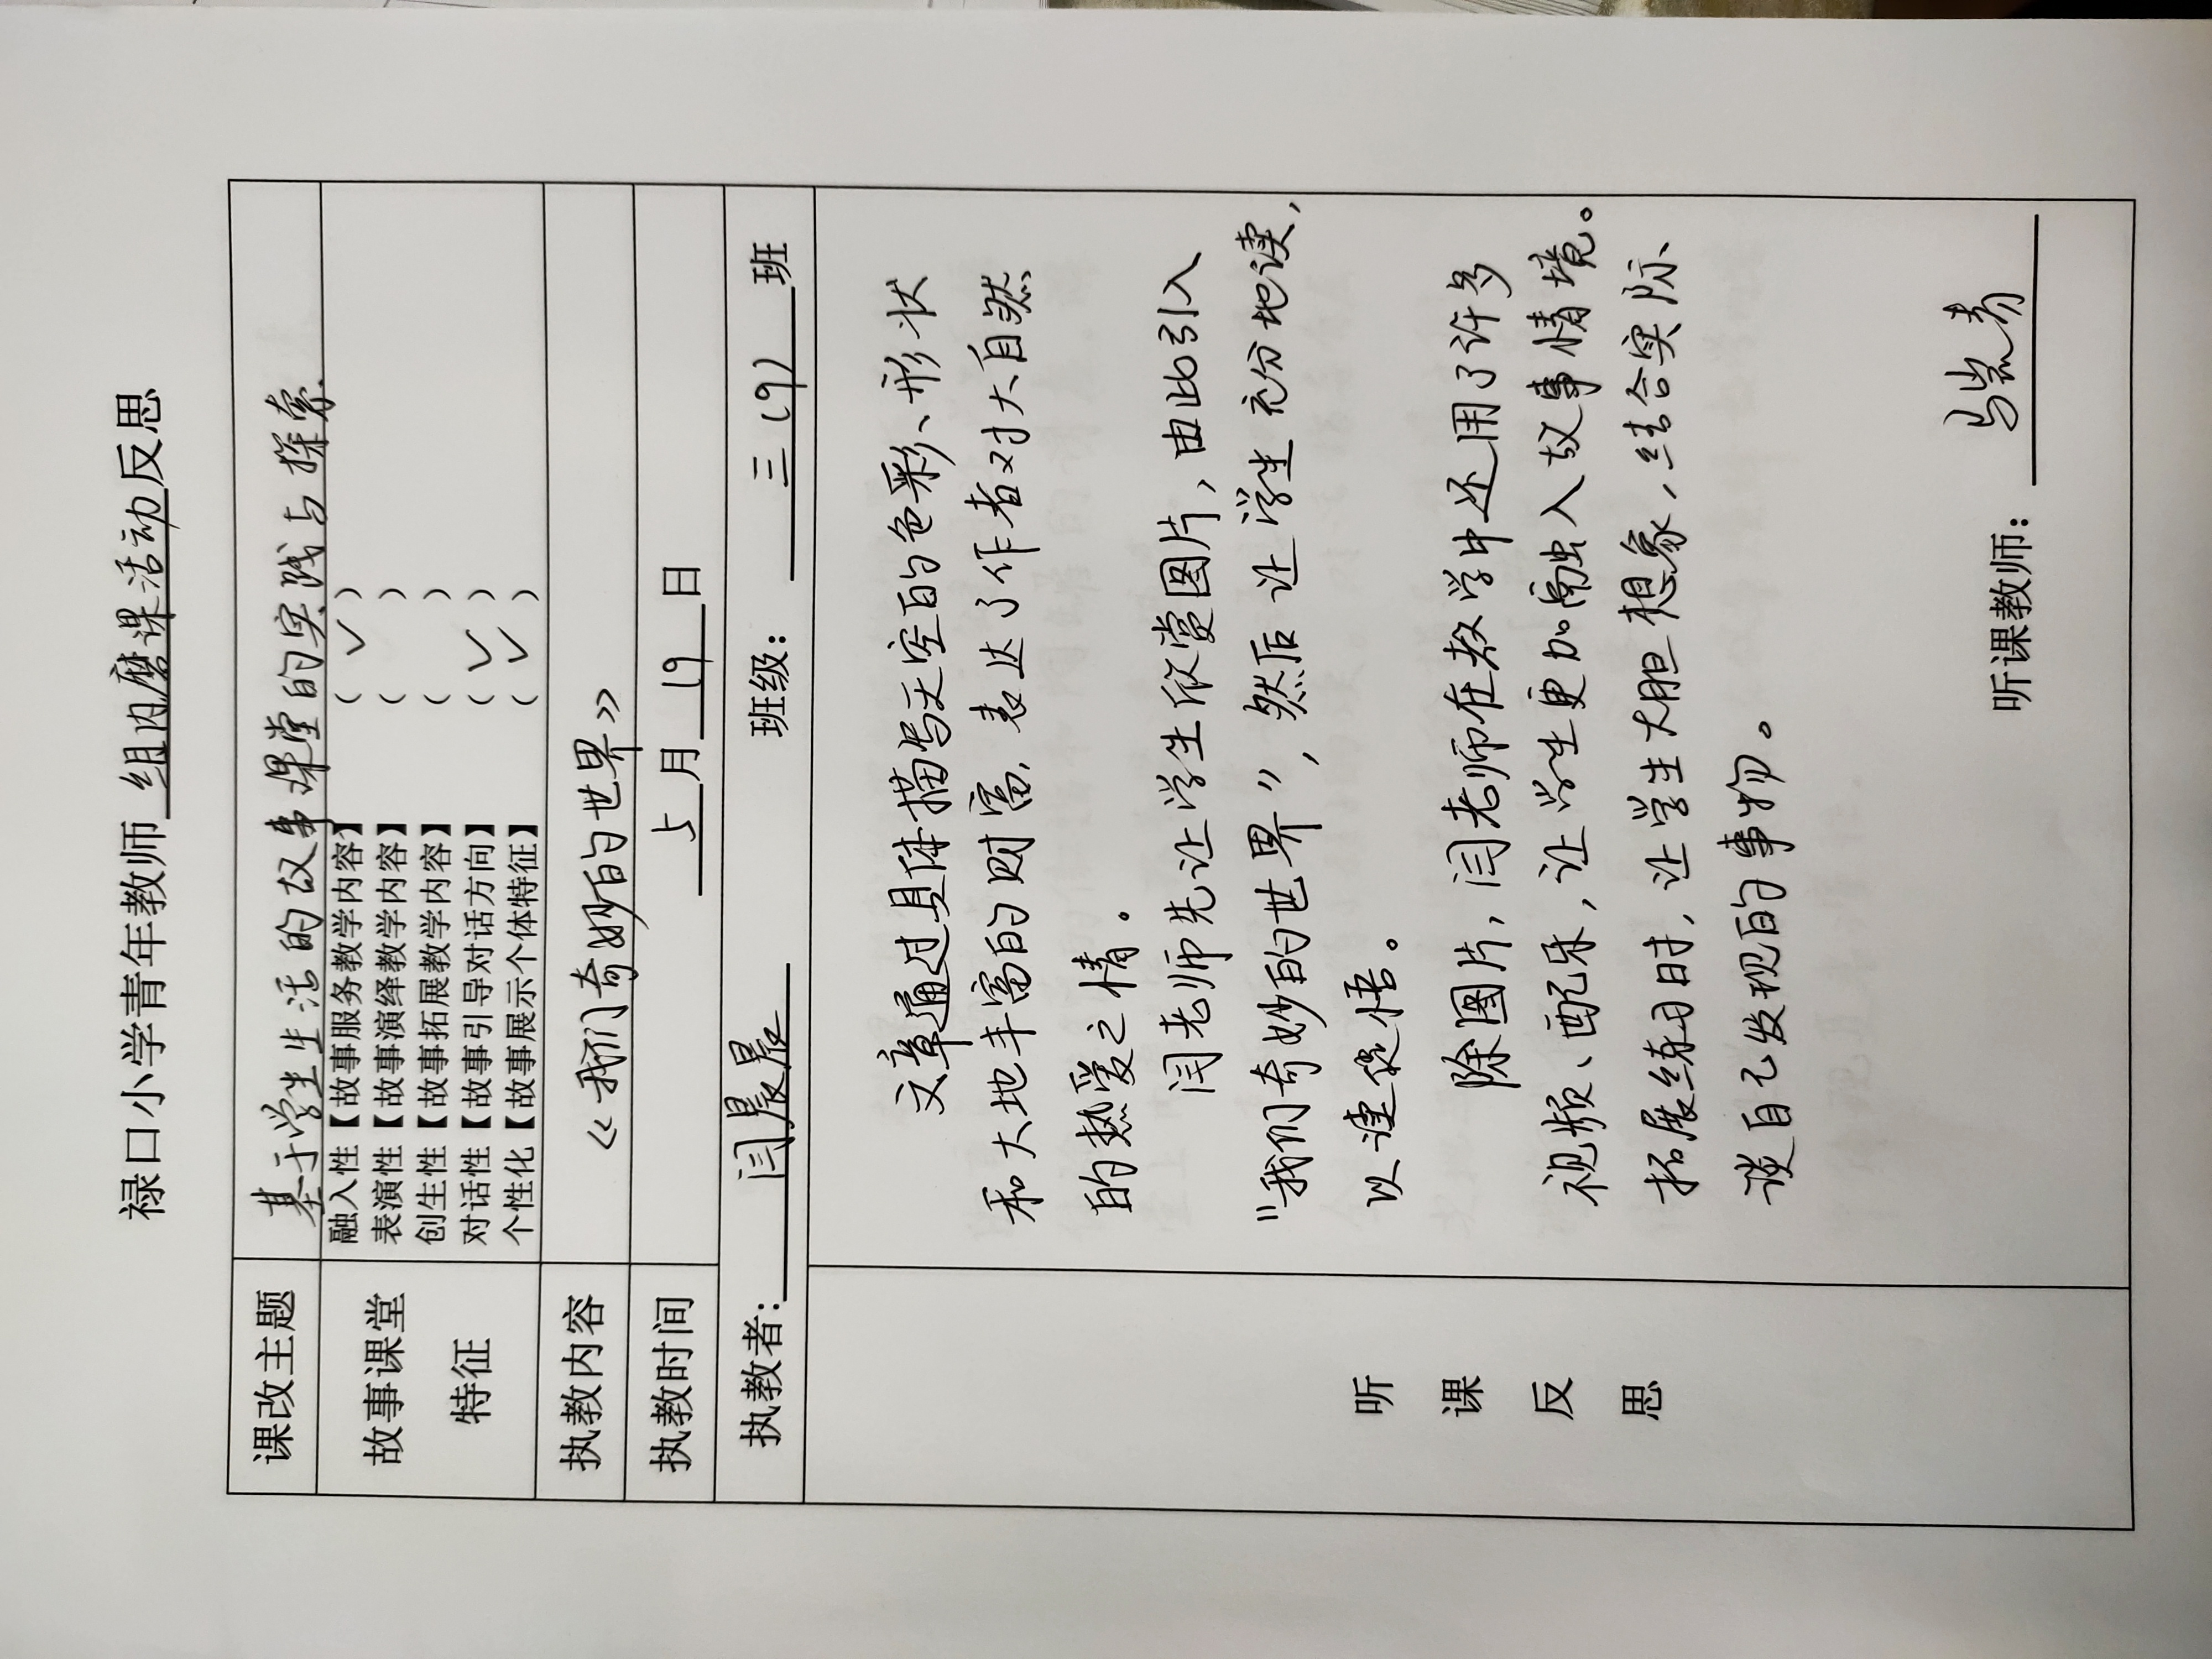 禄口小学青年教师 组内磨课活动 反思
课改主题 基于学生生活的故事课堂的实践与探索
故事课堂
特征
融入性【故事服务教学内容】 ( ✓ )
表演性【故事演绎教学内容】 ( )
创生性【故事拓展教学内容】 ( )
对话性【故事引导对话方向】 ( ✓ )
个性化【故事展示个体特征】 ( ✓ )
执教内容 《我们奇妙的世界》
执教时间 5 月 19 日
执教者: 闫晨晨 班级: 三(9) 班
听课反思
文章通过具体描写天空的色彩、形状
和大地丰富的财富,表达了作者对大自然
的热爱之情。
闫老师先让学生欣赏图片,由此引入
"我们奇妙的世界",然后让学生充分地读,
以读促悟。
除图片,闫老师在教学中还用了许多
视频、配乐,让学生更加融入故事情境。
拓展练习时,让学生大胆想象,结合实际
谈自己发现的事物。
听课教师: 马